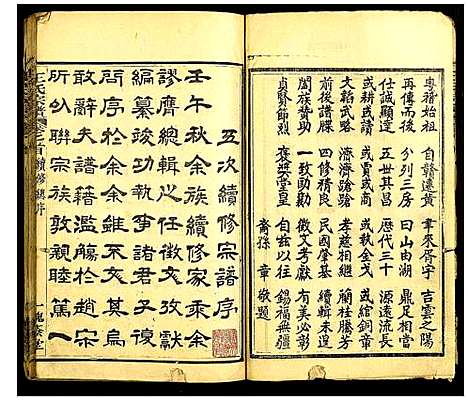 粵稽始祖 自贛遷黃 聿來胥宇 吉雲之陽
再傳而后 分列三房 曰山曰湖 鼎足相當
仕誠顯達 五世其昌 歷代三十 源遠流長
或耕或讀 或賈或商 或綰銅章
文韜武略 濟濟蹌蹌 孝慈相繼 蘭桂騰芳
前後譜牒 四修精良 民國肇基 續輯未遑
闔族贊助 徵文考獻 有美必彰
貞賢節烈 褒奬堂皇 自玆以往 錫福無疆
裔孫 章 敬題
五次續修宗譜序
壬午秋余族續修家乘余
謬膺總輯之任徵文攷獻
編纂竣功執事諸君子復
問序於余余雖不文其烏
敢辭夫譜籍濫觴於趙宋
所以聯宗族敦親睦篤一
王氏宗譜 卷之首 續修譜序 一 槐蔭堂